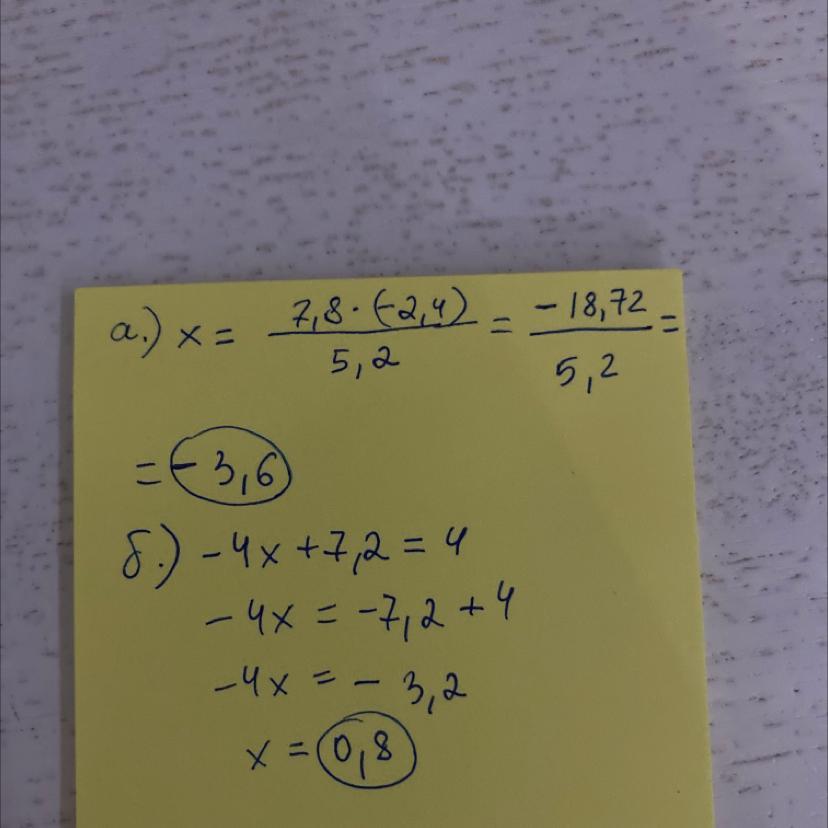 а.) x = 7,8 · (-2,4) / 5,2 = -18,72 / 5,2 =
= -3,6
б.) -4x + 7,2 = 4
-4x = -7,2 + 4
-4x = - 3,2
x = 0,8